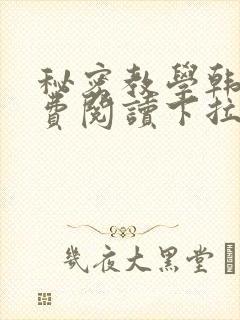 秘密教學韓
費閱讀下拉
幾夜大黑堂